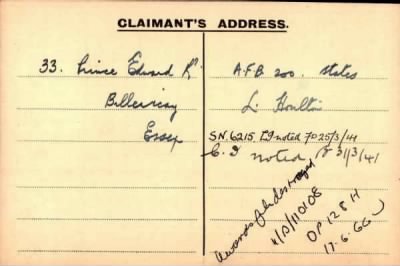 CLAIMANT'S ADDRESS.
33. Prince Edward Rd.
Billericay
Essex
A.F.B. 200. states
L. Houlton
S.N. 6215 noted 25/3/41
C.I noted 31/3/41
Awards file destroyed
4/D/110108
DP 128 H
17.6.66